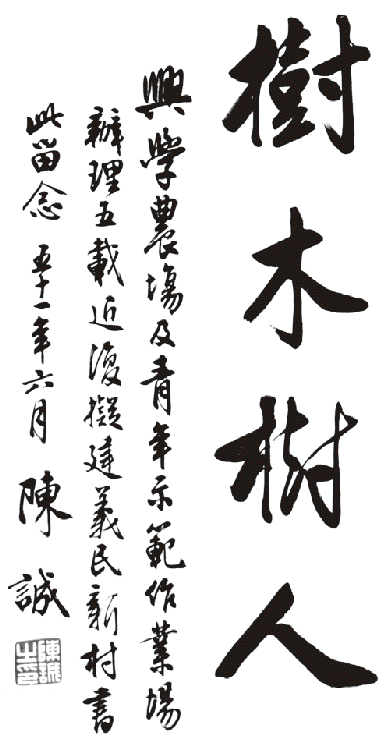 樹木樹人
興學農場及青年示範作業場
辦理五載近復擬建義民新村書
此留念 五十一年六月 陳誠
陳誠之印